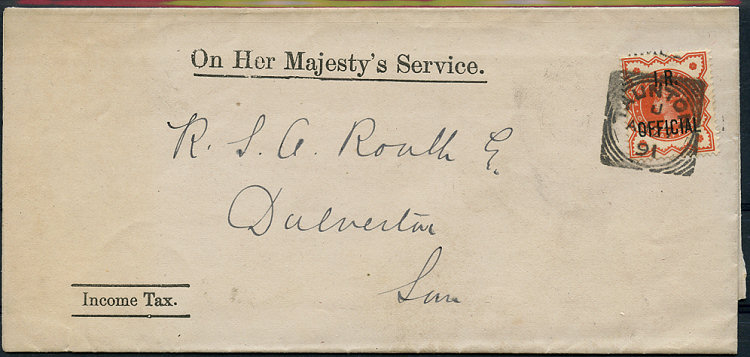 On Her Majesty's Service.
I.R.
OFFICIAL
TAUNTON
U
91
R. S. A. Routh E
Dulverton
Som
Income Tax.